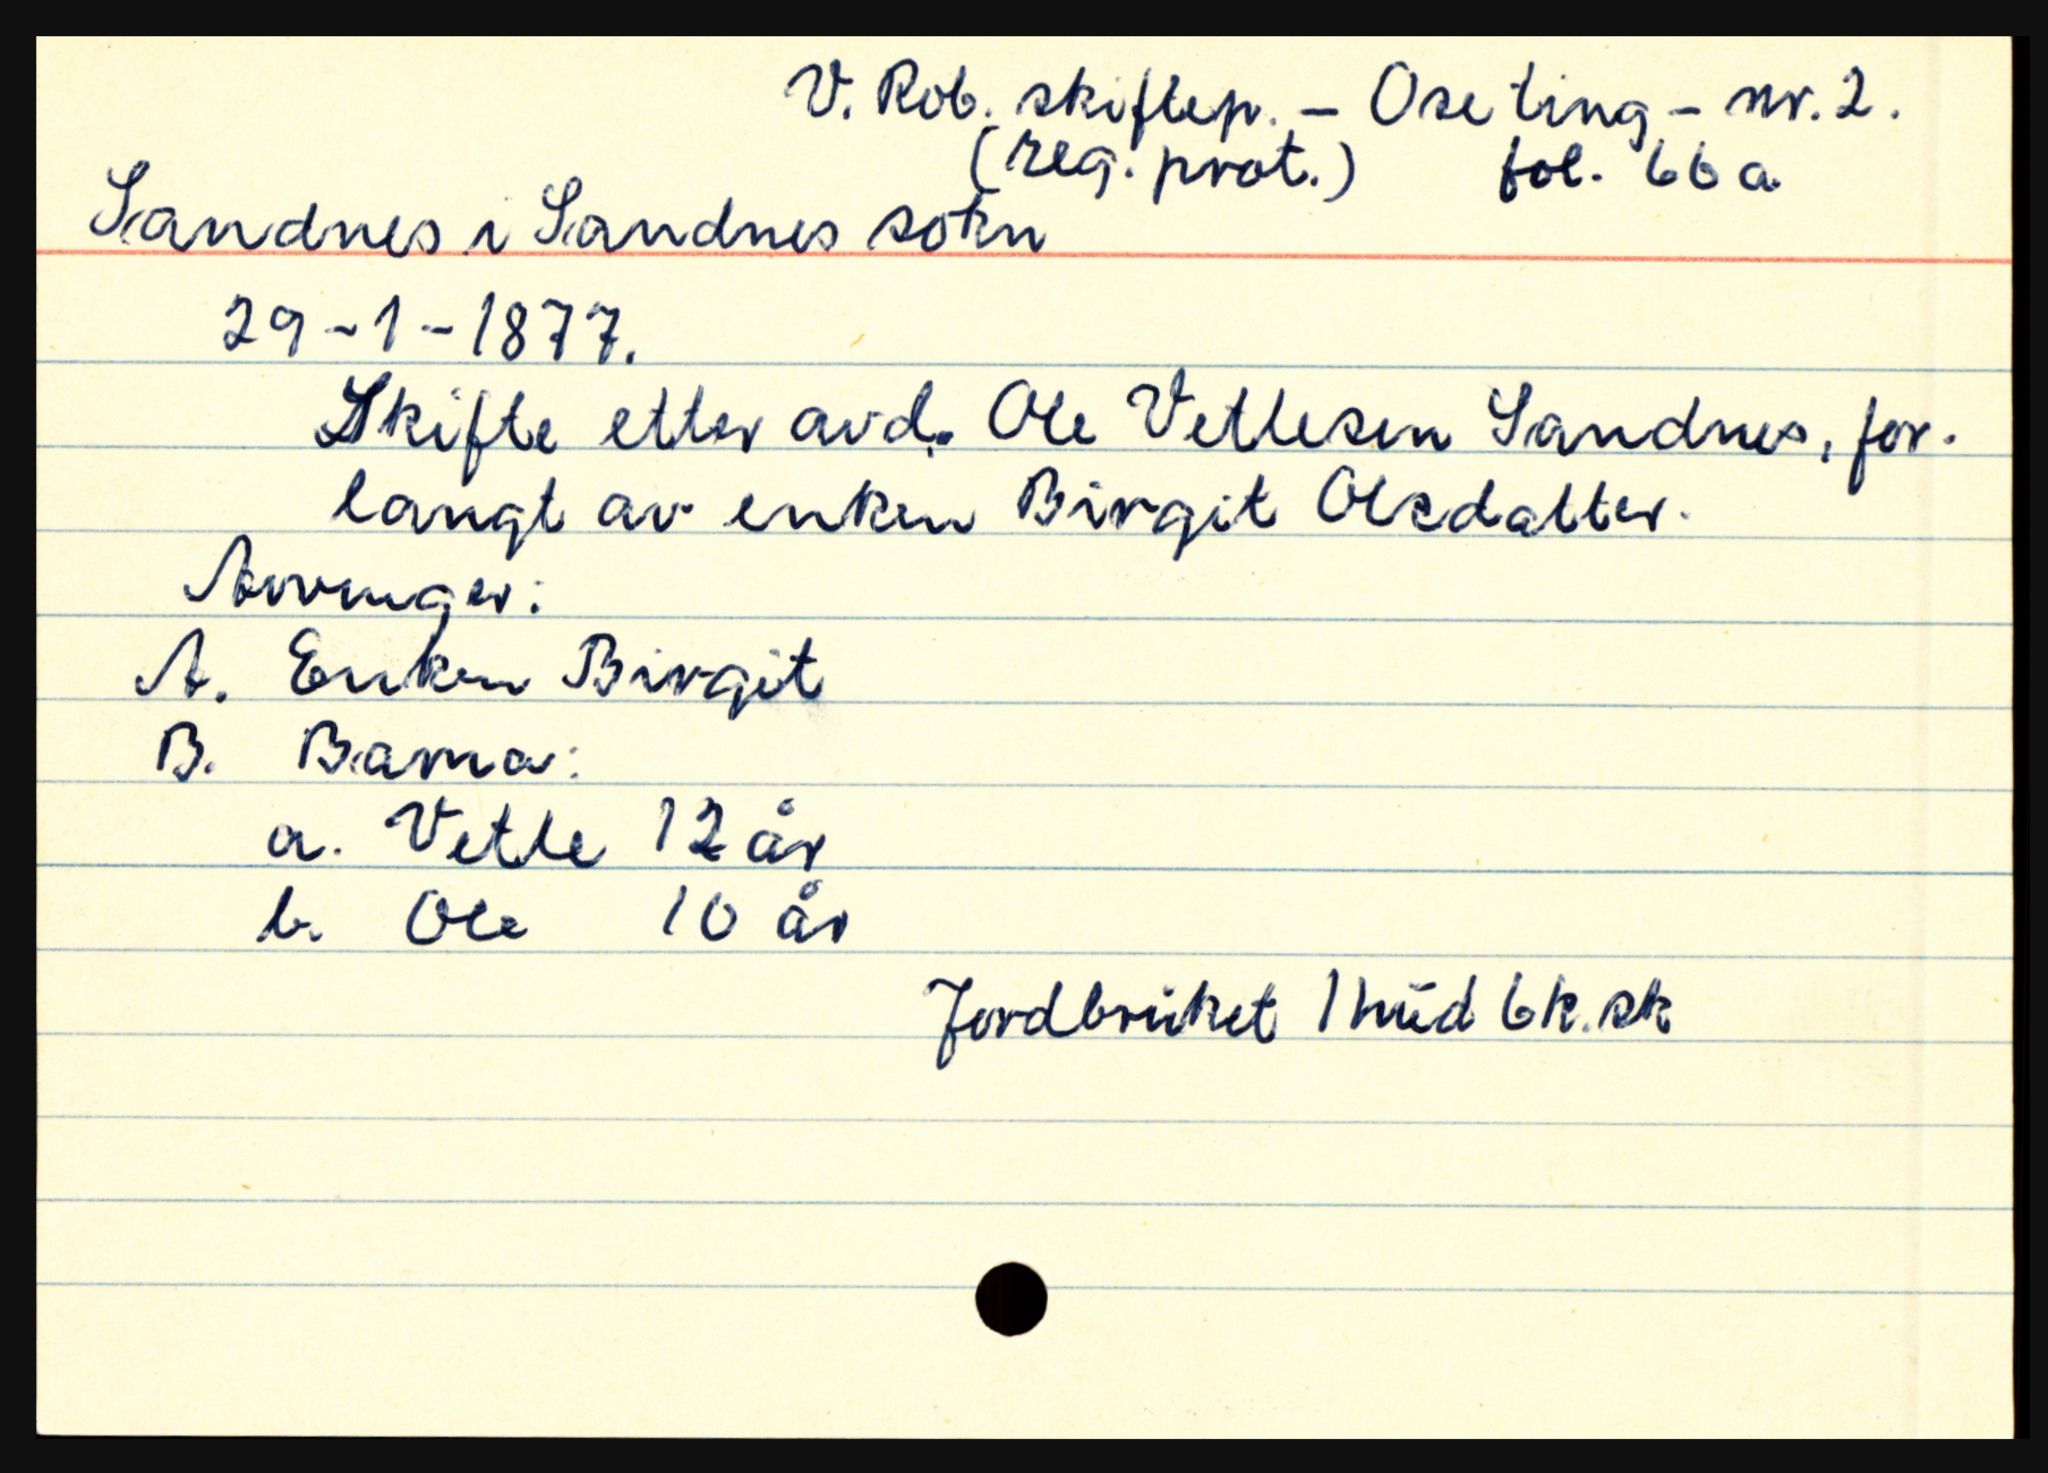 V. Rob. skiftep. – Ose ting – nr. 2.
(reg. prot.) fol. 66a
Sandnes i Sandnes sokn
29-1-1877.
Skifte etter avd. Ole Vetlesen Sandnes, for-
langt av enken Birgit Olsdatter.
Arvinger:
A. Enken Birgit
B. Barna:
a. Vetle 12 år
b. Ole 10 år
Jordbruket 1 hud 6 k. sk